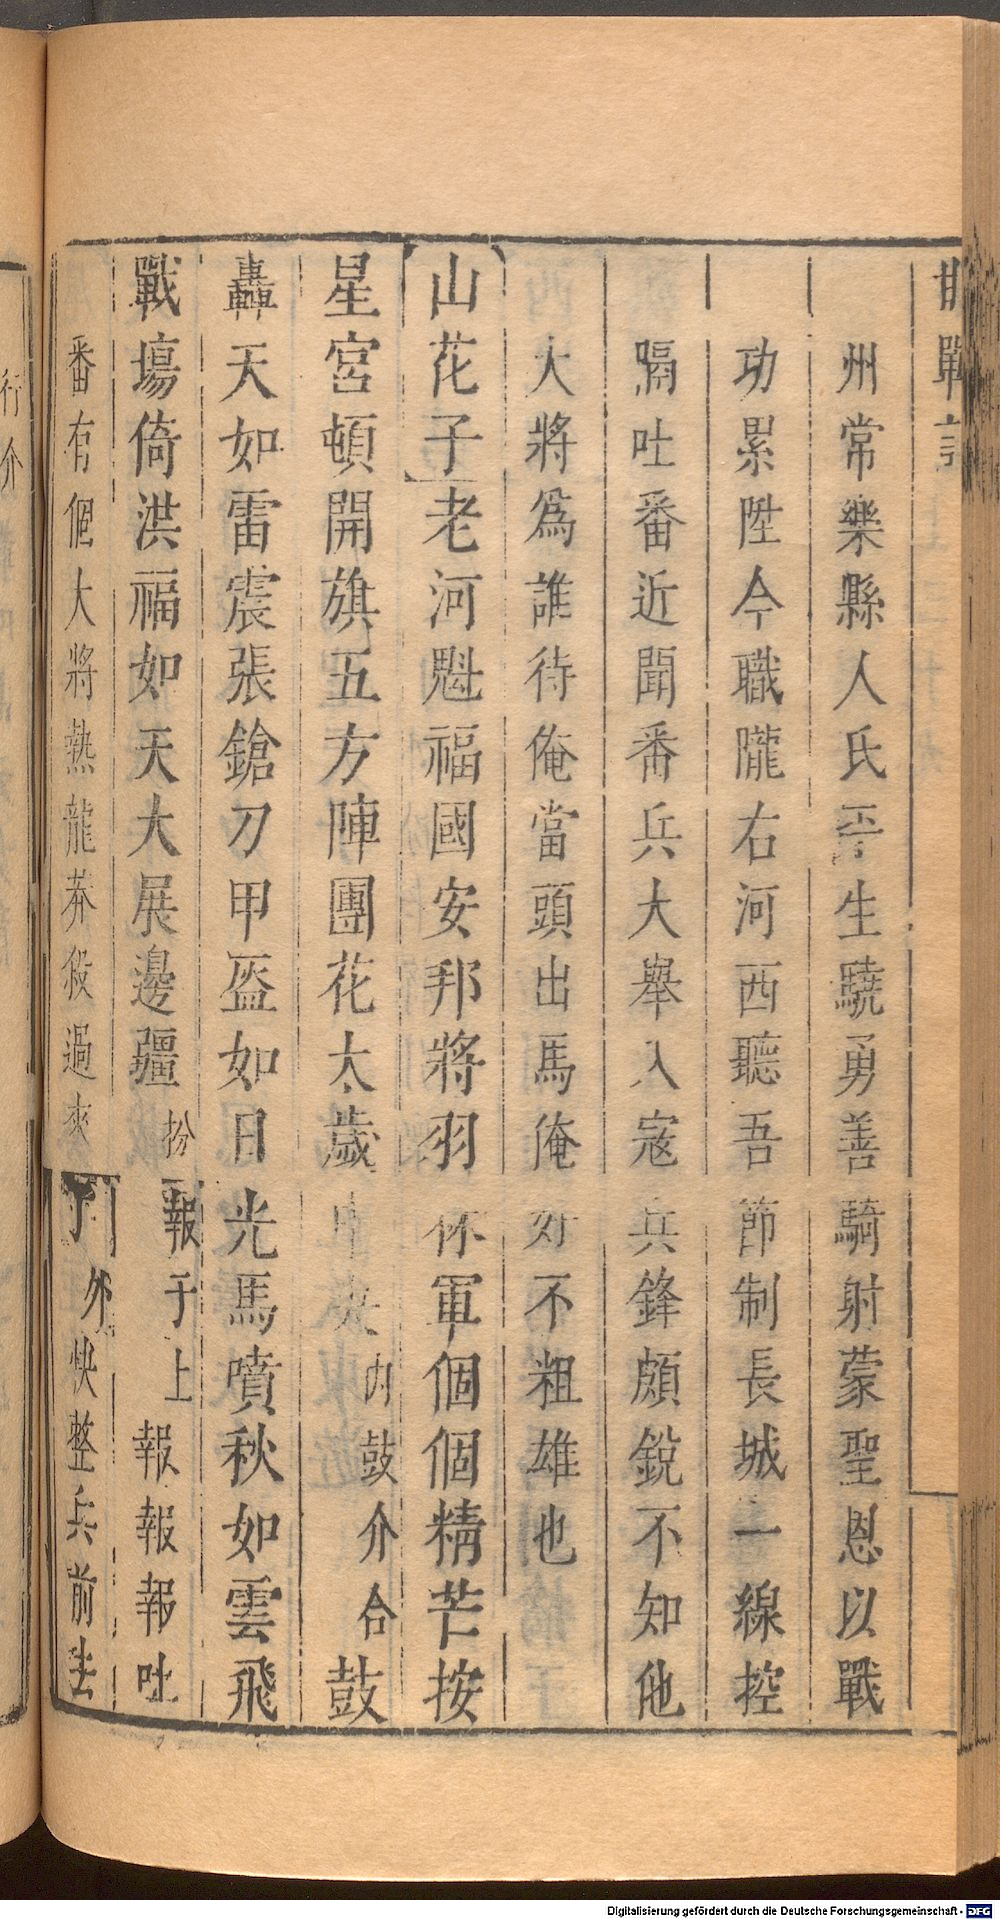 州常樂縣人氏平生驍勇善騎射蒙聖恩以戰
功累陞今職隴右河西聽吾節制長城一線控
隔吐番近聞番兵大舉入寇兵鋒頗銳不知他
大將爲誰待俺當頭出馬俺好不粗雄也
山花子老河魁福國安邦將羽林軍個個精芒按
星宮頓開旗五方陣團花太歲中央內鼓介合鼓
轟天如雷震張鎗刀甲盔如日光馬噴秋如雲飛
戰場倚洪福如天大展邊疆扮報子上報報報吐
番有個大將熱龍莽殺過來了外快整兵前去
行介
Digitalisierung gefördert durch die Deutsche Forschungsgemeinschaft - DFG